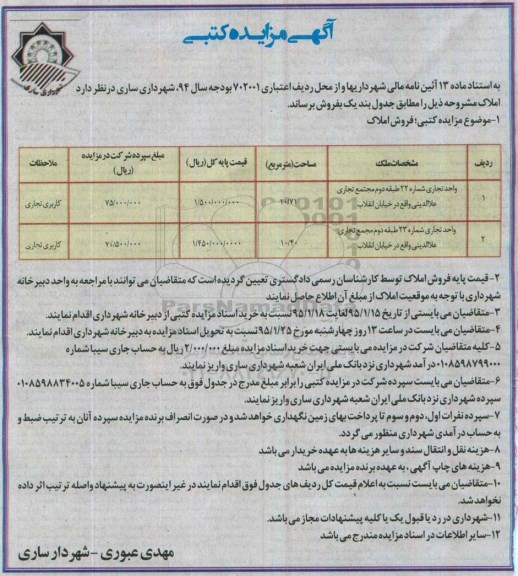 آگهی مزایده کتبی
شهرداری ساری
به استناد ماده ۱۳ آئین نامه مالی شهرداریها و از محل ردیف اعتباری ۷۰۲۰۰۱ بودجه سال ۹۴، شهرداری ساری در نظر دارد
املاک مشروحه ذیل را مطابق جدول بند یک بفروش برساند.
۱-موضوع مزایده کتبی؛ فروش املاک
ردیف مشخصات ملک مساحت(مترمربع) قیمت پایه کل(ریال) مبلغ سپرده شرکت در مزایده (ریال) ملاحظات
۱ واحد تجاری شماره ۲۲ طبقه دوم مجتمع تجاری
علاالدینی واقع در خیابان انقلاب ۱/۵۰۰/۰۰۰/۰۰۰ ۷۵/۰۰۰/۰۰۰ کاربری تجاری
۲ واحد تجاری شماره ۲۳ طبقه دوم مجمع تجاری
علاالدینی واقع در خیابان انقلاب ۱۰/۲۰ ۱/۴۵۰/۰۰۰/۰۰۰۰ ۷۰/۵۰۰/۰۰۰ کاربری تجاری
۲- قیمت پایه فروش املاک توسط کارشناسان رسمی دادگستری تعیین گردیده است که متقاضیان می توانند با مراجعه به واحد دبیرخانه
شهرداری با توجه به موقعیت املاک از مبلغ آن اطلاع حاصل نمایند
۳-متقاضیان می بایستی از تاریخ ۹۵/۱/۱۵ لغایت ۹۵/۱/۱۸ نسبت به خرید اسناد مزایده کتبی از دبیرخانه شهرداری اقدام نمایند.
۴-متقاضیان می بایست در ساعت ۱۳ روز چهارشنبه مورخ ۹۵/۱/۲۵ نسبت به تحویل اسناد مزایده به دبیرخانه شهرداری اقدام نمایند.
۵-کلیه متقاضیان شرکت در مزایده می بایستی جهت خرید اسناد مزایده مبلغ ۲/۰۰۰/۰۰۰ ریال به حساب جاری سیبا شماره
۰۱۰۸۵۹۸۷۹۹۰۰۰ درآمد شهرداری نزد بانک ملی ایران شعبه شهرداری ساری واریز نمایند.
۶-متقاضیان می بایست سپرده شرکت در مزایده کتبی را برابر مبلغ مدرج در جدول فوق به حساب جاری سیبا شماره ۰۱۰۸۵۹۸۸۳۴۰۰۵
سپرده شهرداری نزد بانک ملی ایران شعبه شهرداری ساری واریز نمایند.
۷-سپرده نفرات اول، دوم و سوم تا پرداخت بهای زمین نگهداری خواهد شد و در صورت انصراف برنده مزایده سپرده آنان به ترتیب ضبط و
به حساب درآمدی شهرداری منظور می گردد.
۸-هزینه نقل و انتقال سند و سایر هزینه ها به عهده خریدار می باشد
۹-هزینه های چاپ آگهی، به عهده برنده مزایده می باشد
۱۰-متقاضیان می بایست نسبت به اعلام قیمت کل ردیف های جدول فوق اقدام نمایند در غیر اینصورت به پیشنهاد واصله ترتیب اثر داده
نخواهد شد.
۱۱-شهرداری در رد یا قبول یک یا کلیه پیشنهادات مجاز می باشد.
۱۲-سایر اطلاعات در اسناد مزایده مندرج می باشد
مهدی عبوری - شهردار ساری